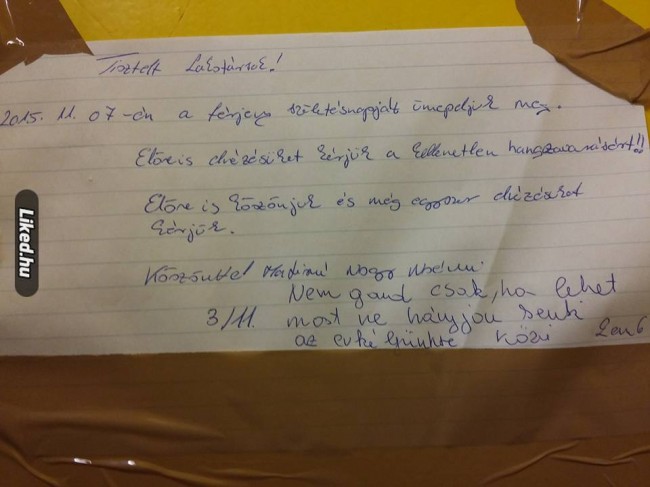 Tisztelt Lakótársak!
2015. 11. 07-én a férjem születésnapját ünnepeljük meg.
Előre is elnézésüket kérjük a kellemetlen hangzavarásért!!
Előre is köszönjük és még egyszer elnézésüket
kérjük.
Köszönettel Nagy
Nem gond csak, ha lehet
3/11. most ne hányjon senki
az erkélyünkre köszi 2em6
Liked.hu